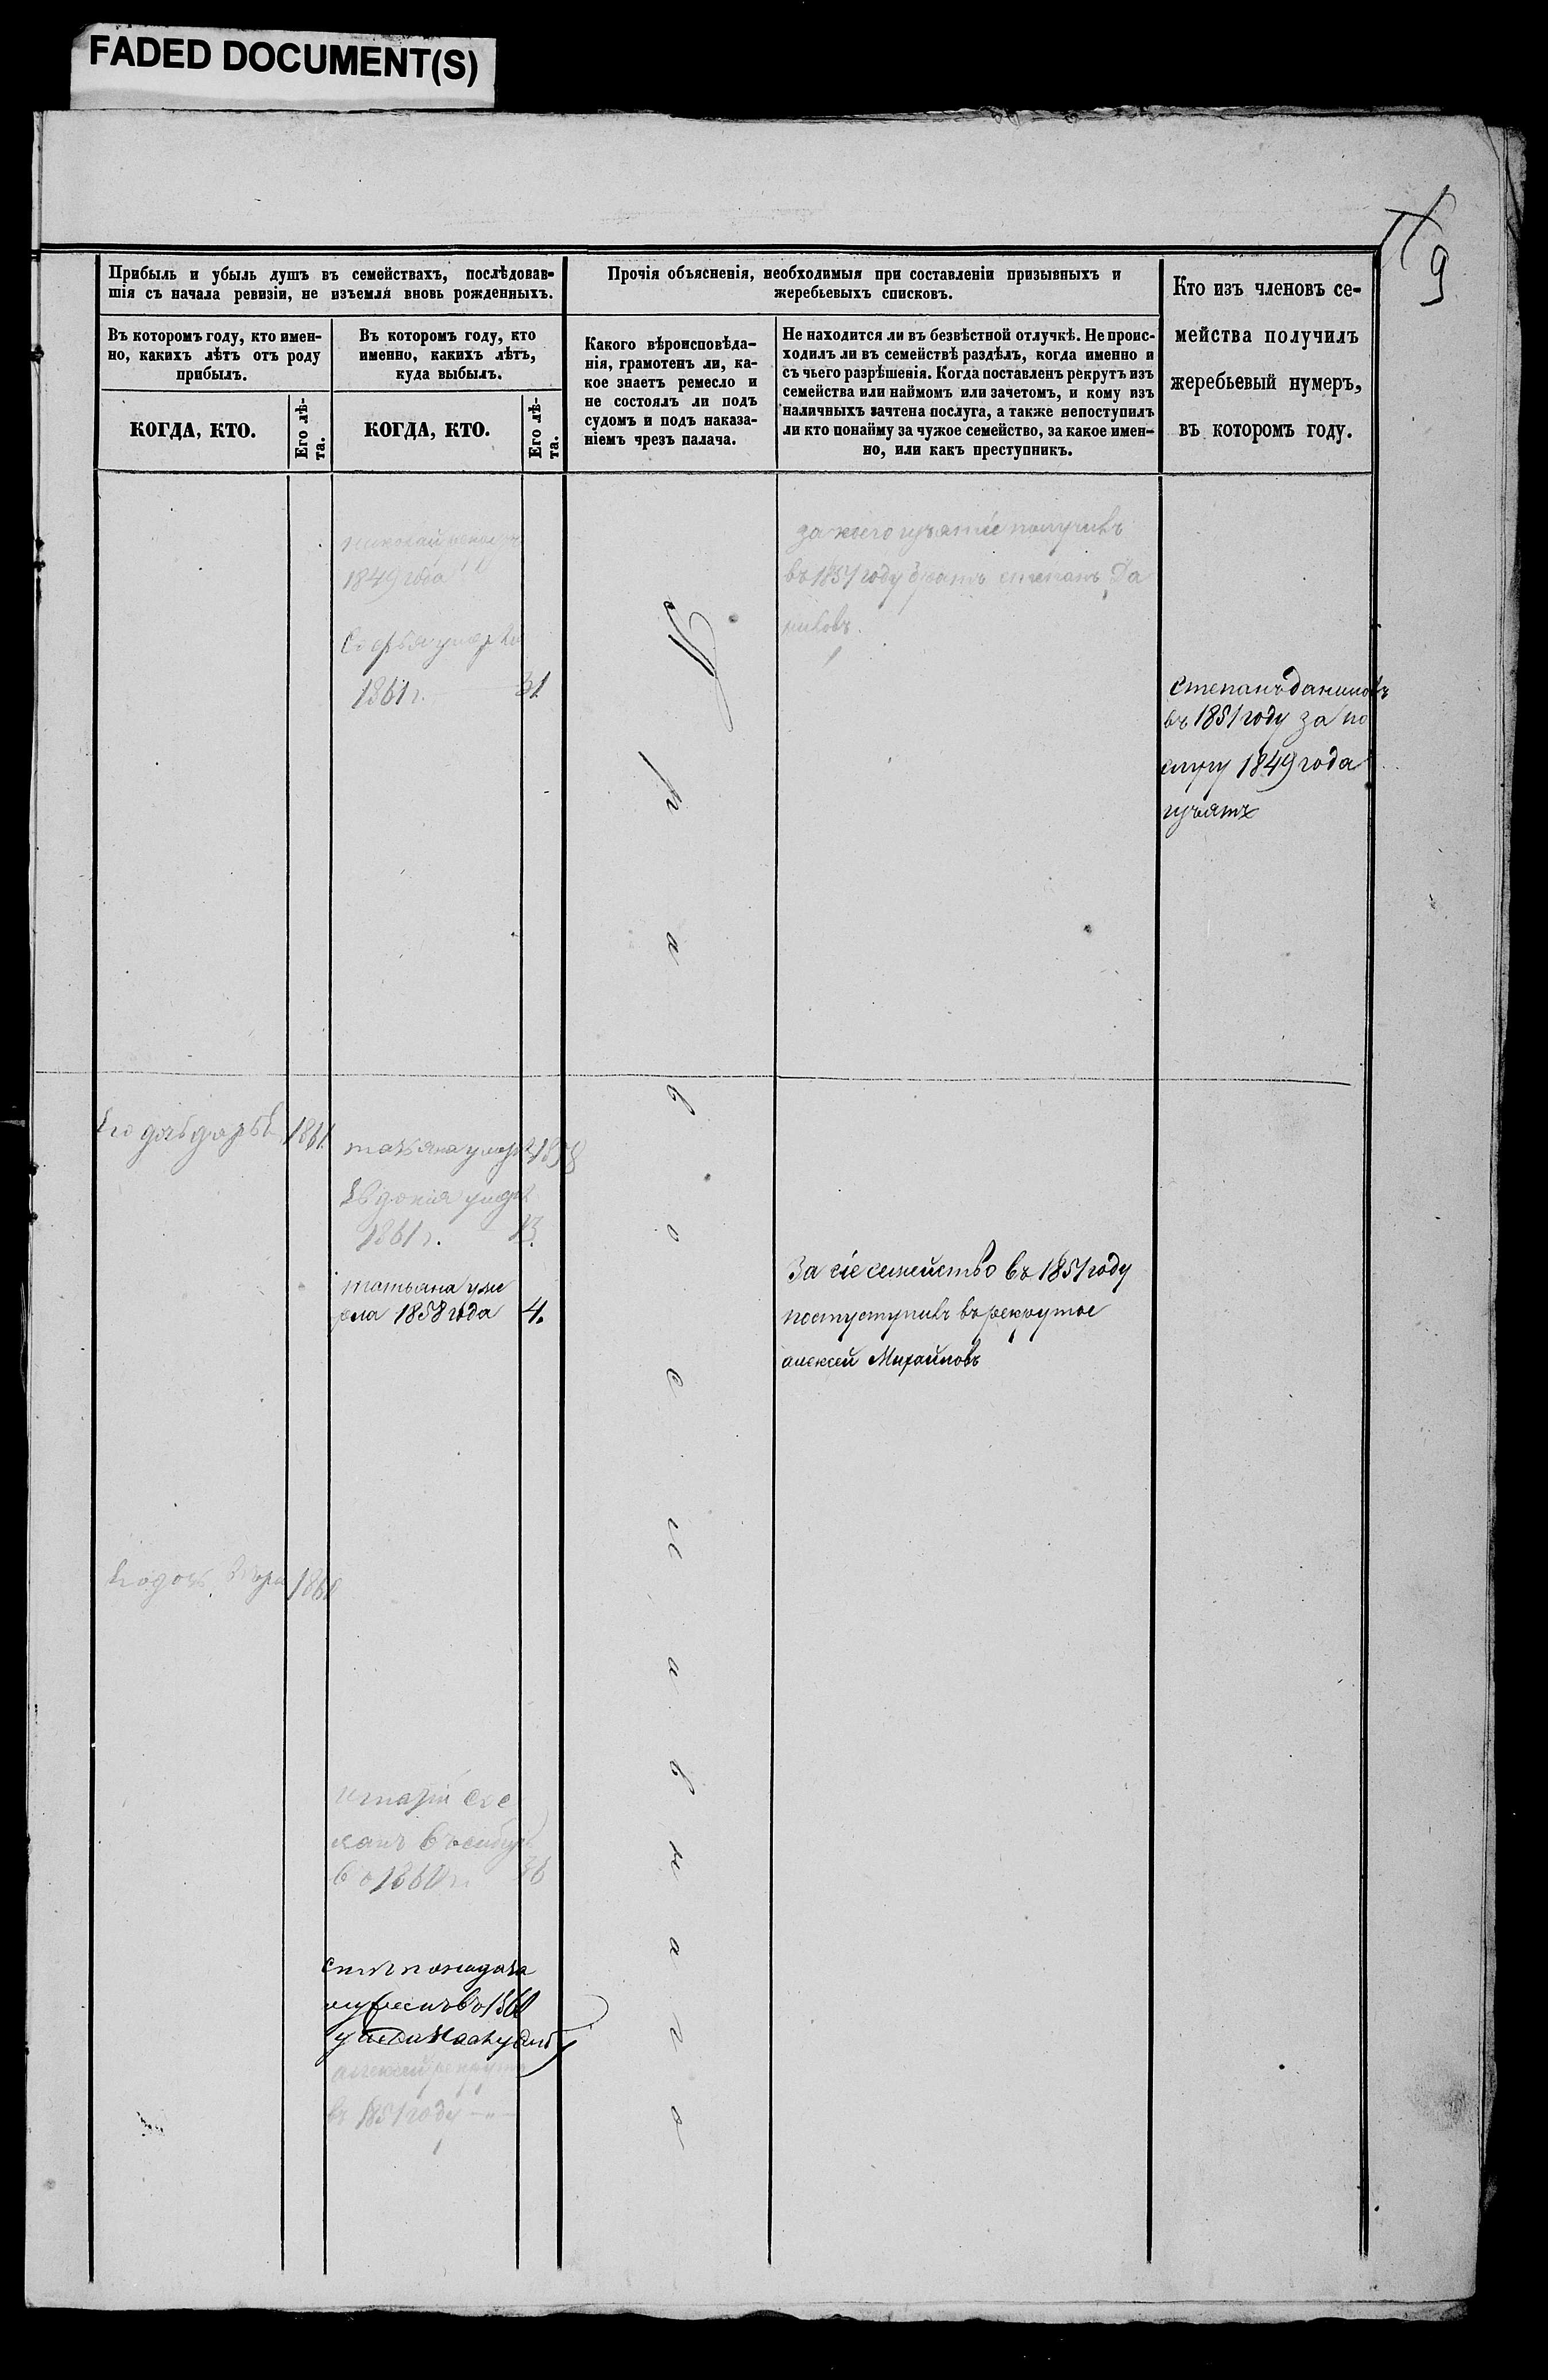 FADED DOCUMENT(S)
9
Прибыль и убыль душъ въ семействахъ, послѣдовав-
шія съ начала ревизіи, не изъемля вновь рожденныхъ.
Въ которомъ году, кто имен-
но, какихъ лѣтъ отъ роду
прибылъ.
КОГДА, КТО.
Его лѣ-
та.
Въ которомъ году, кто
именно, какихъ лѣтъ,
куда выбылъ.
КОГДА, КТО.
Его лѣ-
та.
Прочія объясненія, необходимыя при составленіи призывныхъ и
жеребьевыхъ списковъ.
Какого вѣроисповѣда-
нія, грамотенъ ли, ка-
кое знаетъ ремесло и
не состоялъ ли подъ
судомъ и подъ наказа-
ніемъ чрезъ палача.
Не находится ли въ безвѣстной отлучкѣ. Не проис-
ходилъ ли въ семействѣ раздѣлъ, когда именно и
съ чьего разрѣшенія. Когда поставленъ рекрутъ изъ
семейства или наймомъ или зачетомъ, и кому изъ
наличныхъ зачтена послуга, а также непоступилъ
ли кто понайму за чужое семейство, за какое имен-
но, или какъ преступникъ.
Кто изъ членовъ се-
мейства получилъ
жеребьевый нумеръ,
въ которомъ году.
николай
1849 года
Софья умерла
1861 г. 31
за коего изъятіе получилъ
въ 1851 году братъ степанъ Да
ниловъ
степанъ даниловъ
въ 1851 году за по
слугу 1849 года
изъятъ
Его дочь дарья 1861
татьяна умерла 1858
Евдокія умерла
1861 г. 13.
татьяна уме
рла 1858 года 4.
За сіе семейство въ 1851 году
постуступилъ въ рекруты
алексей Михайловъ
Его дочь 1860
Игнатій сос
ланъ в сибирь
в 1860 г. 36
алексей рекрутъ
въ 1851 году
Православнаго